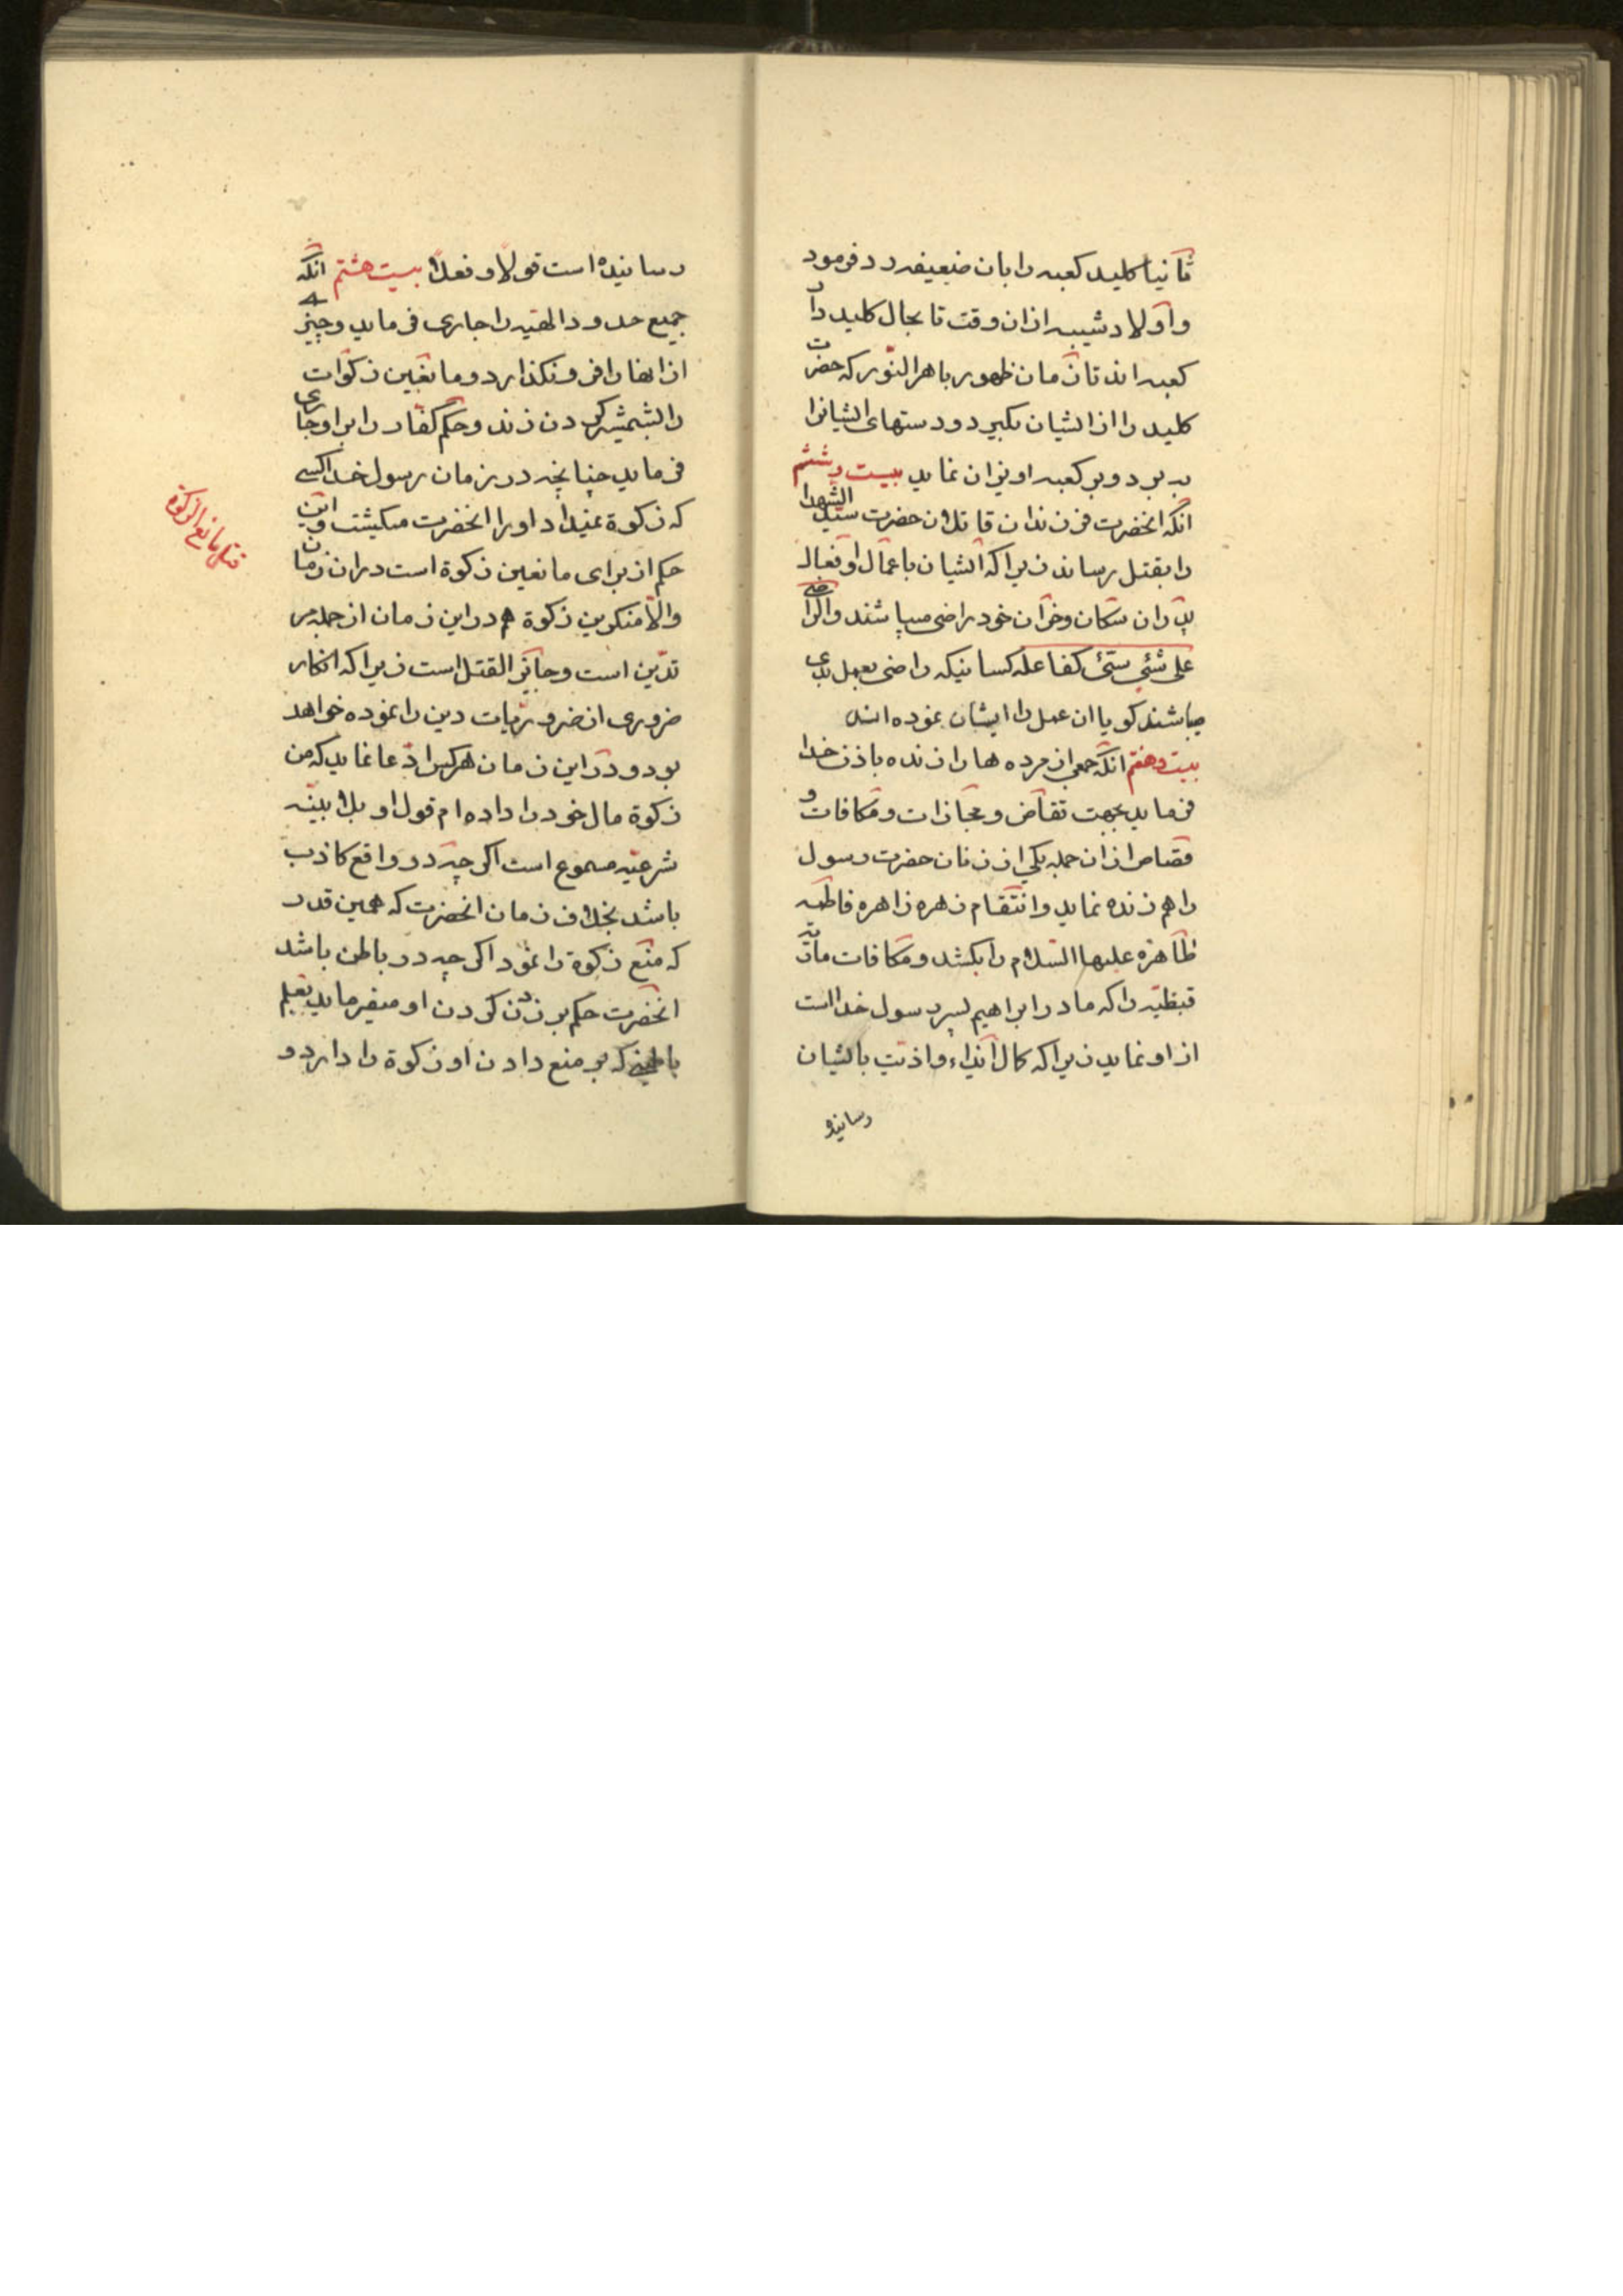 ثانیا کلید کعبه را بان ضعیفه رد فرمود
و اولاد شیبه از ان وقت تا بحال کلید دار
کعبه اند تا زمان ظهور باهر النّور که حضرت
کلید را از ایشان بکیرد و دستهای ایشانرا
ببرد و بر کعبه اویزان نماید بیست و ششم
انکه انحضرت فرزندان قاتلان حضرت سیّد الشهدا
را بقتل رساند زیرا که ایشان باعمال و افعال
پدران سکان و خران خود راضی میباشند و الراضی
علی شئ سئ کفاعله کسانیکه راضی بعمل بدی
میباشند کویا ان عمل را ایشان نموده اند
بیست و هفتم انکه جمعی از مرده ها را زنده باذن خدا
فرماید بجهت تقاص و مجازات و مکافات و
قصاص از ان جمله یکی از زنان حضرت رسول
را هم زنده نماید و انتقام زهره زاهره فاطمه
طاهره علیها السلام را بکشد و مکافات ماریه
قبطیّه را که مادر ابراهیم پسر رسول خدا است
از او نماید زیرا که کمال ایذاء و اذیّت بایشان
رسانیده
رسانیده است قولاً و فعلاً بیست هشتم انکه
جمیع حدود الهیّه را جاری فرماید و چیزی
از انها را فرو نکذارد و مانعین زکوات
را بشمشیر کردن زند و حکم کفار را بر او جاری
فرماید چنانچه در زمان رسول خدا کسی
که زکوة نمیداد او را انحضرت میکشت و این
حکم از برای مانعین زکوة است در ان زمان
و الّا منکرین زکوة هم در این زمان از جمله مر
تدّین است و جایز القتل است زیرا که انکار
ضروری از ضروریّات دین را نموده خواهد
بود و در این زمان هر کس ادّعا نماید که من
زکوة مال خود را داده ام قول او بلا بیّنه
شرعیّه مسموع است اکر چه در واقع کاذب
باشد بخلاف زمان انحضرت که همین قدر
که منع زکوة را نمود اکر چه در باطن باشد
انحضرت حکم بر زدن کردن او میفرماید بعلم
باطنی که بر منع دادن او زکوة را دارد و
قتل مانع الزکوة